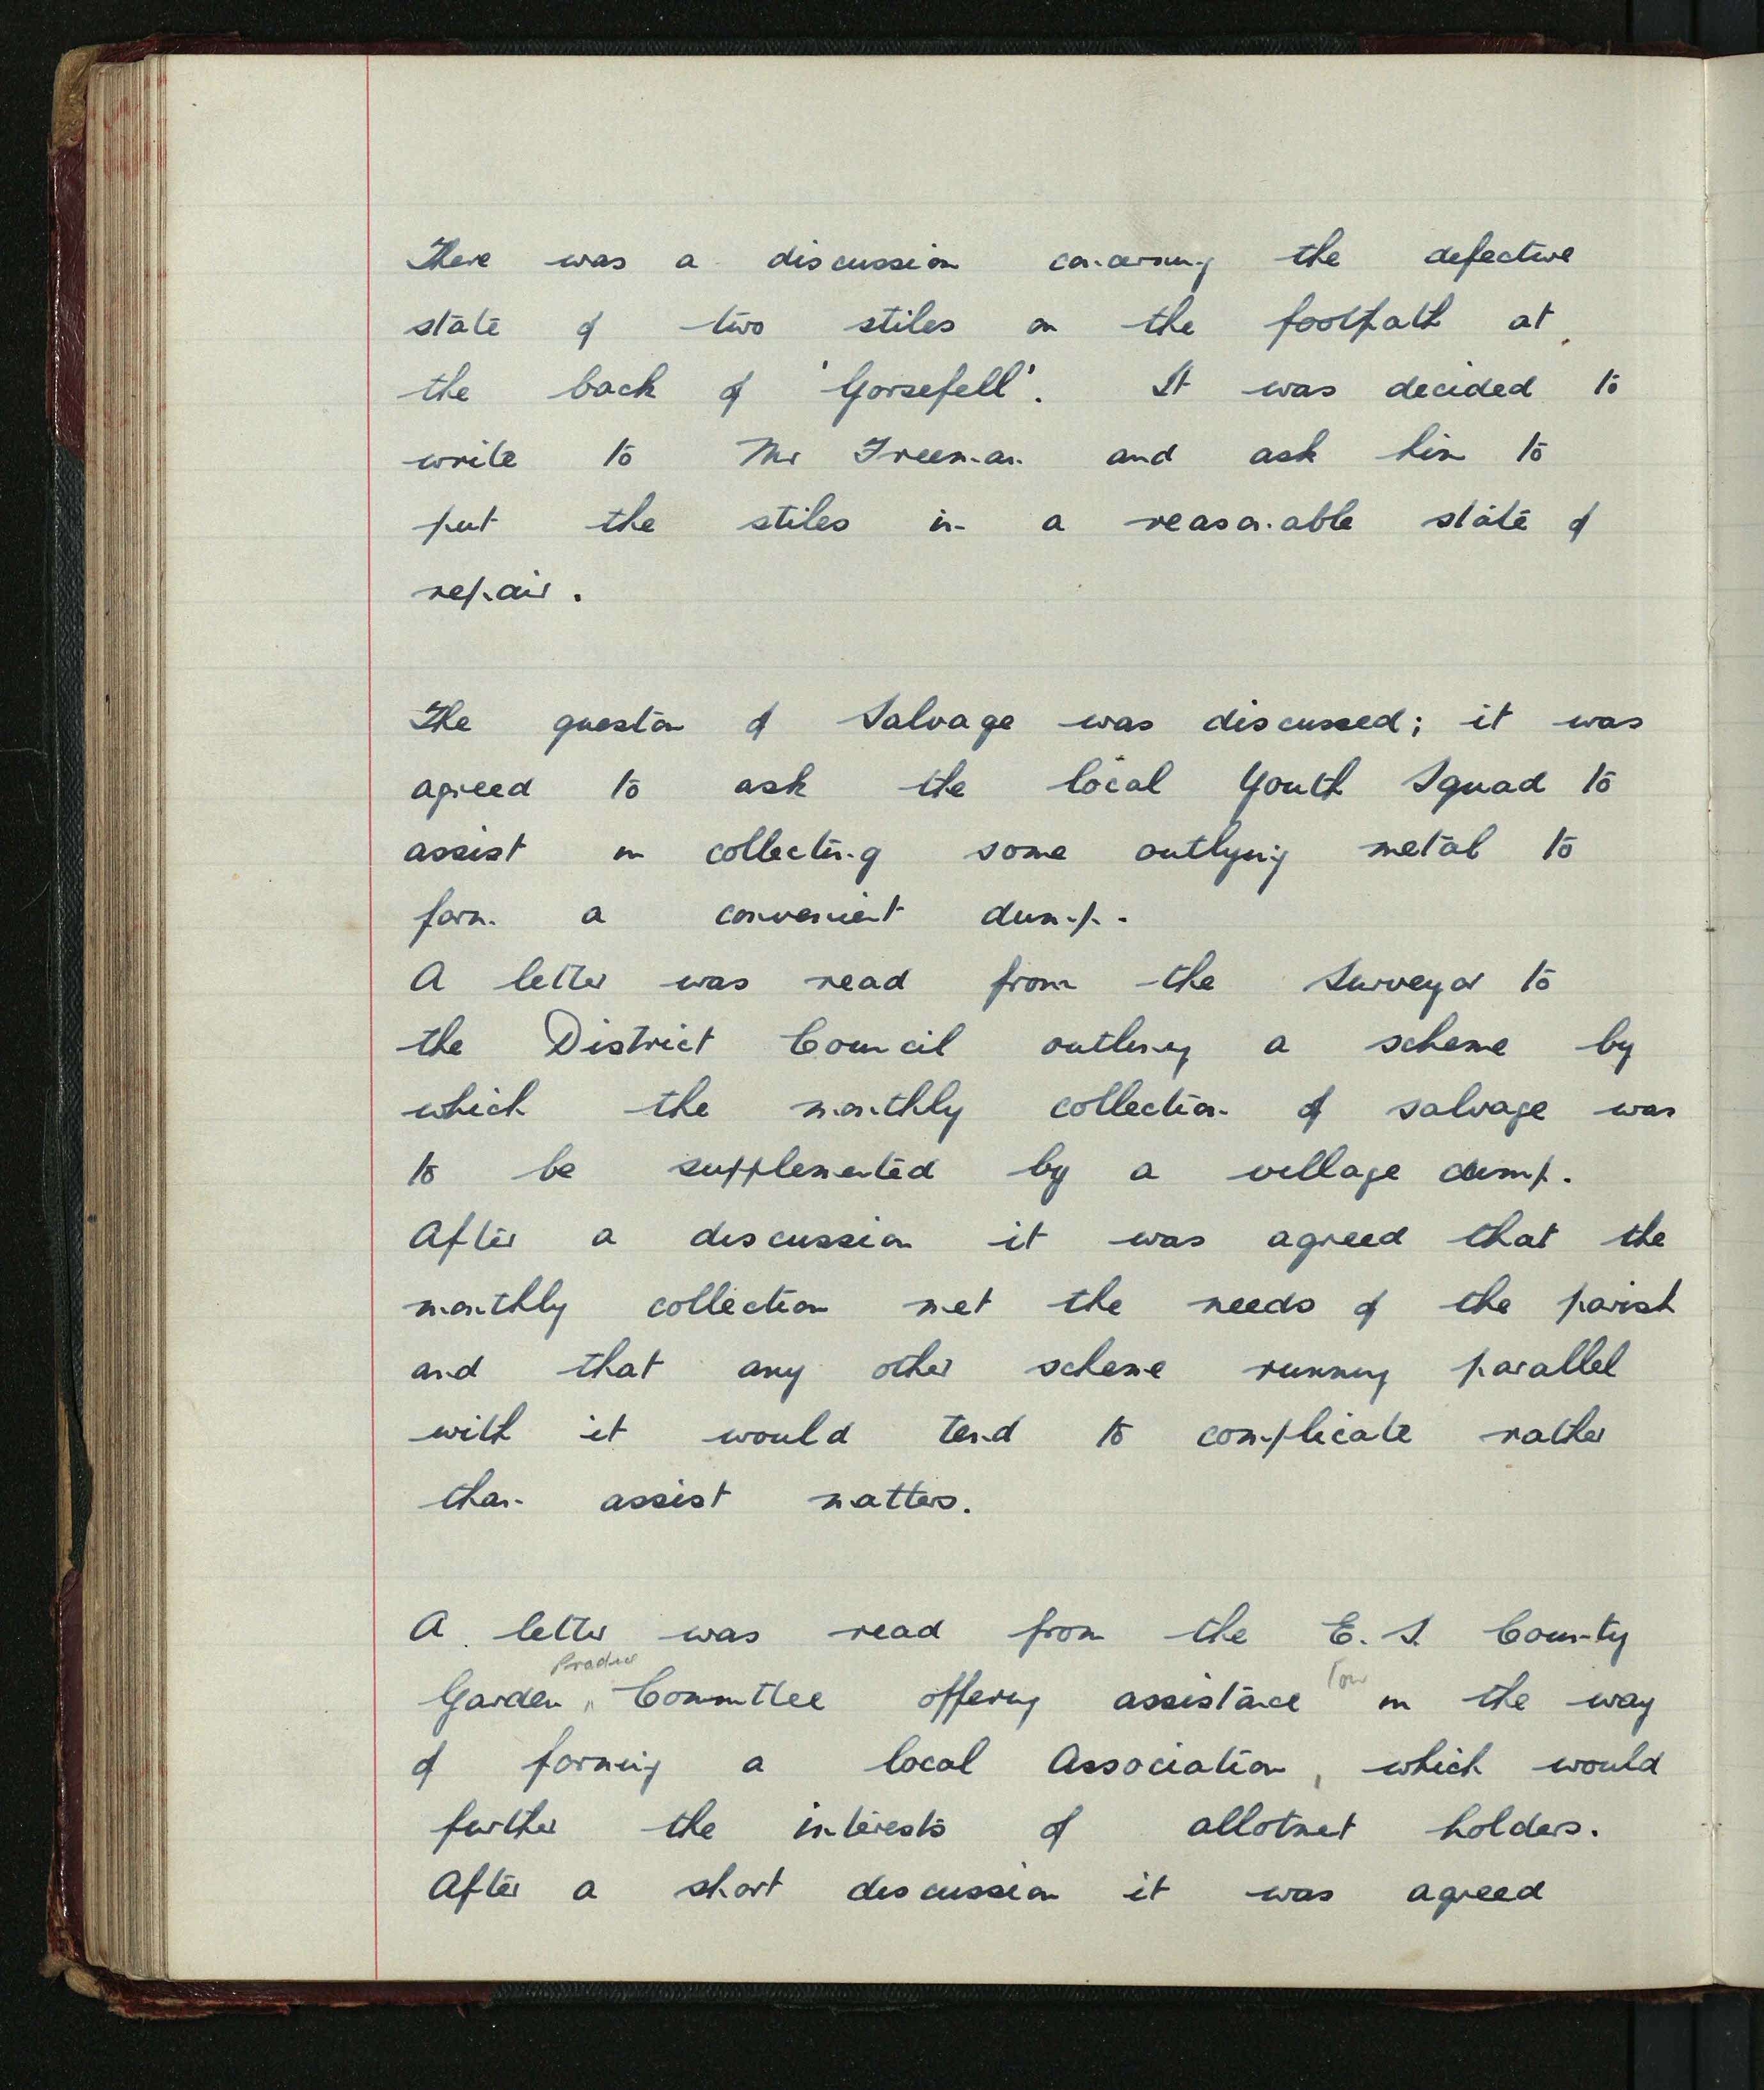 There was a discussion concerning the defective
state of two stiles on the footpath at
the back of 'Gorsefell'. It was decided to
write to Mr Freeman and ask him to
put the stiles in a reasonable state of
repair.
The question of Salvage was discussed; it was
agreed to ask the local Youth Squad to
assist in collecting some outlying metal to
form a convenient dump.
A letter was read from the Surveyor to
the District Council outlining a scheme by
which the monthly collection of salvage was
to be supplemented by a village dump.
After a discussion it was agreed that the
monthly collection met the needs of the parish
and that any other scheme running parallel
with it would tend to complicate rather
than assist matters.
A letter was read from the E. S. County
Produce
Garden Committee offering assistance in the way
of forming a local Association, which would
further the interests of allotmet holders.
After a short discussion it was agreed